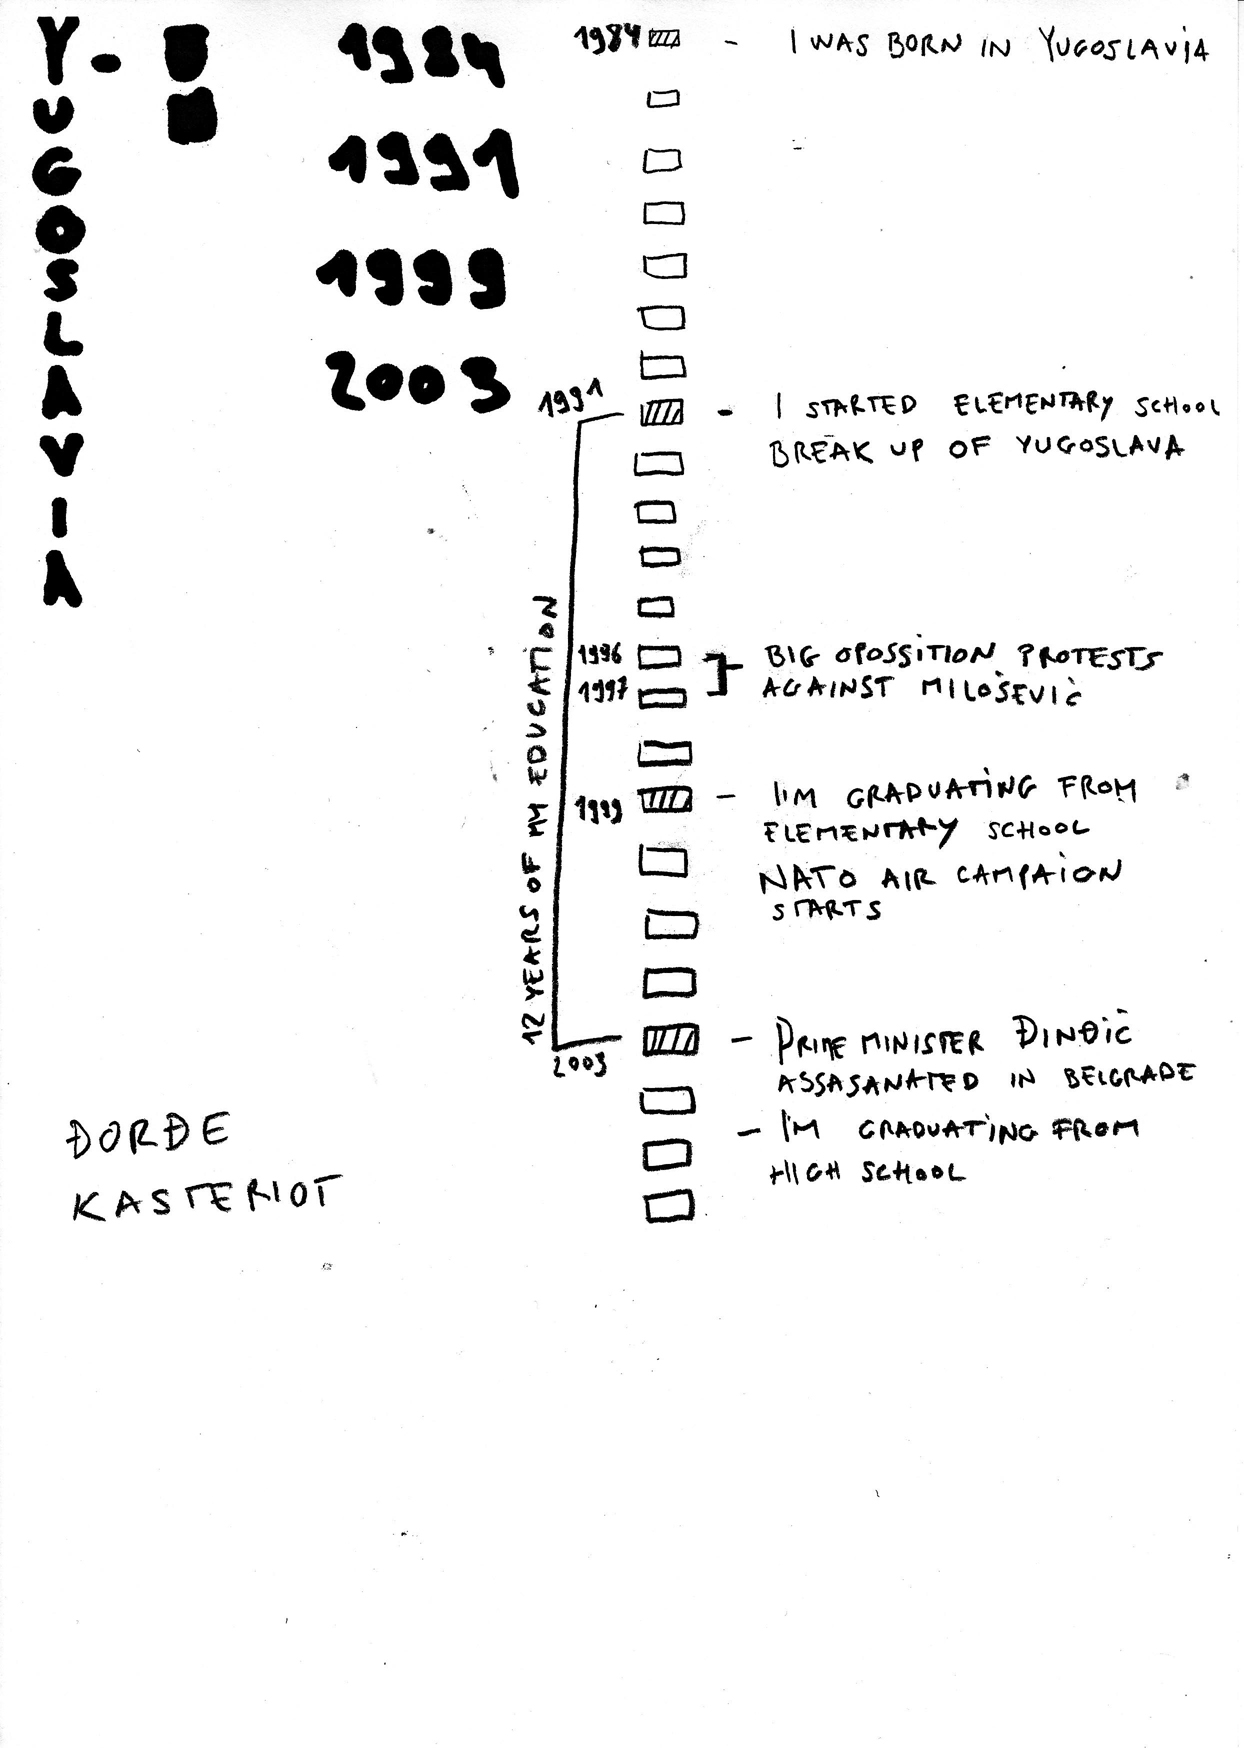 YUGOSLAVIA
1984
1991
1999
2003
1984 - I WAS BORN IN YUGOSLAVIA
1991 - I STARTED ELEMENTARY SCHOOL
BREAK UP OF YUGOSLAVA
12 YEARS OF MY EDUCATION
1996 BIG OPOSSITION PROTESTS
1997 AGAINST MILOŠEVIĆ
1999 - I'M GRADUATING FROM
ELEMENTARY SCHOOL
NATO AIR CAMPAION
STARTS
2003 - PRIME MINISTER ĐINĐIĆ
ASSASANATED IN BELGRADE
- I'M GRADUATING FROM
HIGH SCHOOL
ĐORĐE
KASTERIOT